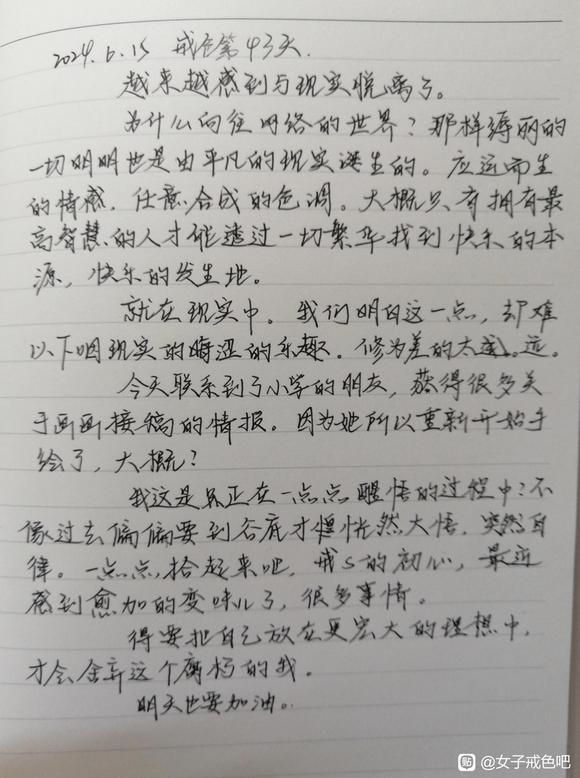 2024.6.15 戒色第43天.
越来越感到与现实脱离了。
为什么向往网络的世界？那样缛丽的
一切明明也是由平凡的现实诞生的。应运而生
的情感，任意合成的色调。大概只有拥有最
高智慧的人才能透过一切繁华找到快乐的本
源，快乐的发生地。
就在现实中。我们明白这一点，却难
以下咽现实的晦涩的乐趣。修为差的太远。
今天联系到了小学的朋友，获得很多关
于画画接稿的情报。因为她所以重新开始手
绘了，大概？
我这是真正在一点点醒悟的过程中？不
像过去偏偏要到谷底才恍然大悟，突然自
律。一点点，拾起来吧，戒s的初心，最近
感到愈加的变味儿了，很多事情。
得要把自己放在更宏大的理想中，
才会舍弃这个腐朽的我。
明天也要加油。
贴 @女子戒色吧